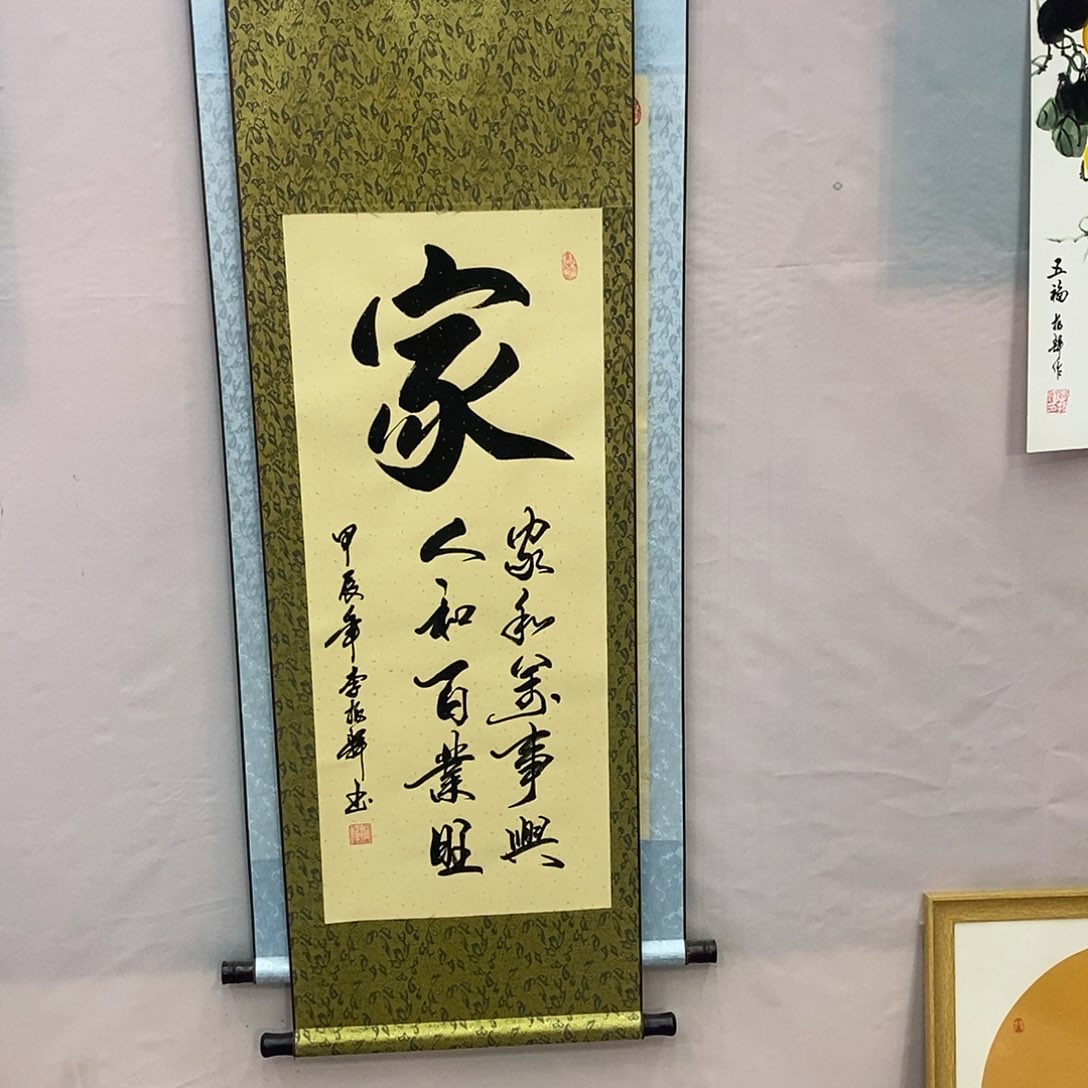 家
家和萬事興
人和百業旺
甲辰年李振輝书
五福
振輝作